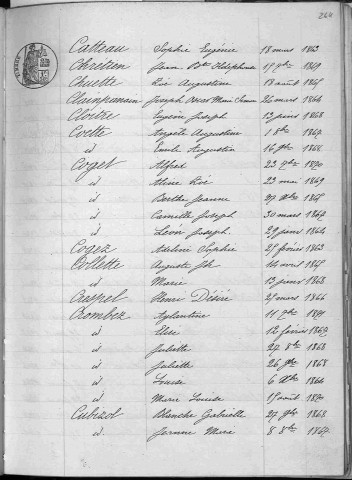 264
Catteau Sophie Eugénie 18 mars 1863
Chrétien Jean Bte Théophane 17 7bre 1869
Chuette Zoé Augustine 18 août 1865
Clainpanain Joseph Marie 26 mars 1864
Cloître Eugène Joseph 13 juin 1868
Coette Angèle Augustine 1 8bre 1862
id Emile Augustin 16 9bre 1864
Coget Alfred 23 7bre 1870
id Aline Zoé 23 mai 1869
id Berthe Jeanne 27 Xbre 1865
id Camille Joseph 30 mars 1862
id Léon Joseph 29 janv 1864
Cogez Adeline Sophie 25 février 1863
Collette Auguste Jh 14 avril 1865
id Marie 13 janv 1863
Crespel Henri Désiré 25 mars 1866
Crombez Eglantine 11 7bre 1871
id Elise 12 février 1867
id Juliette 24 8bre 1863
id Juliette 26 9bre 1868
id Louise 6 Xbre 1864
id Marie Louise 15 août 1870
Cubizol Blanche Gabrielle 27 9bre 1863
id. Jeanne Marie 8 8bre 1867